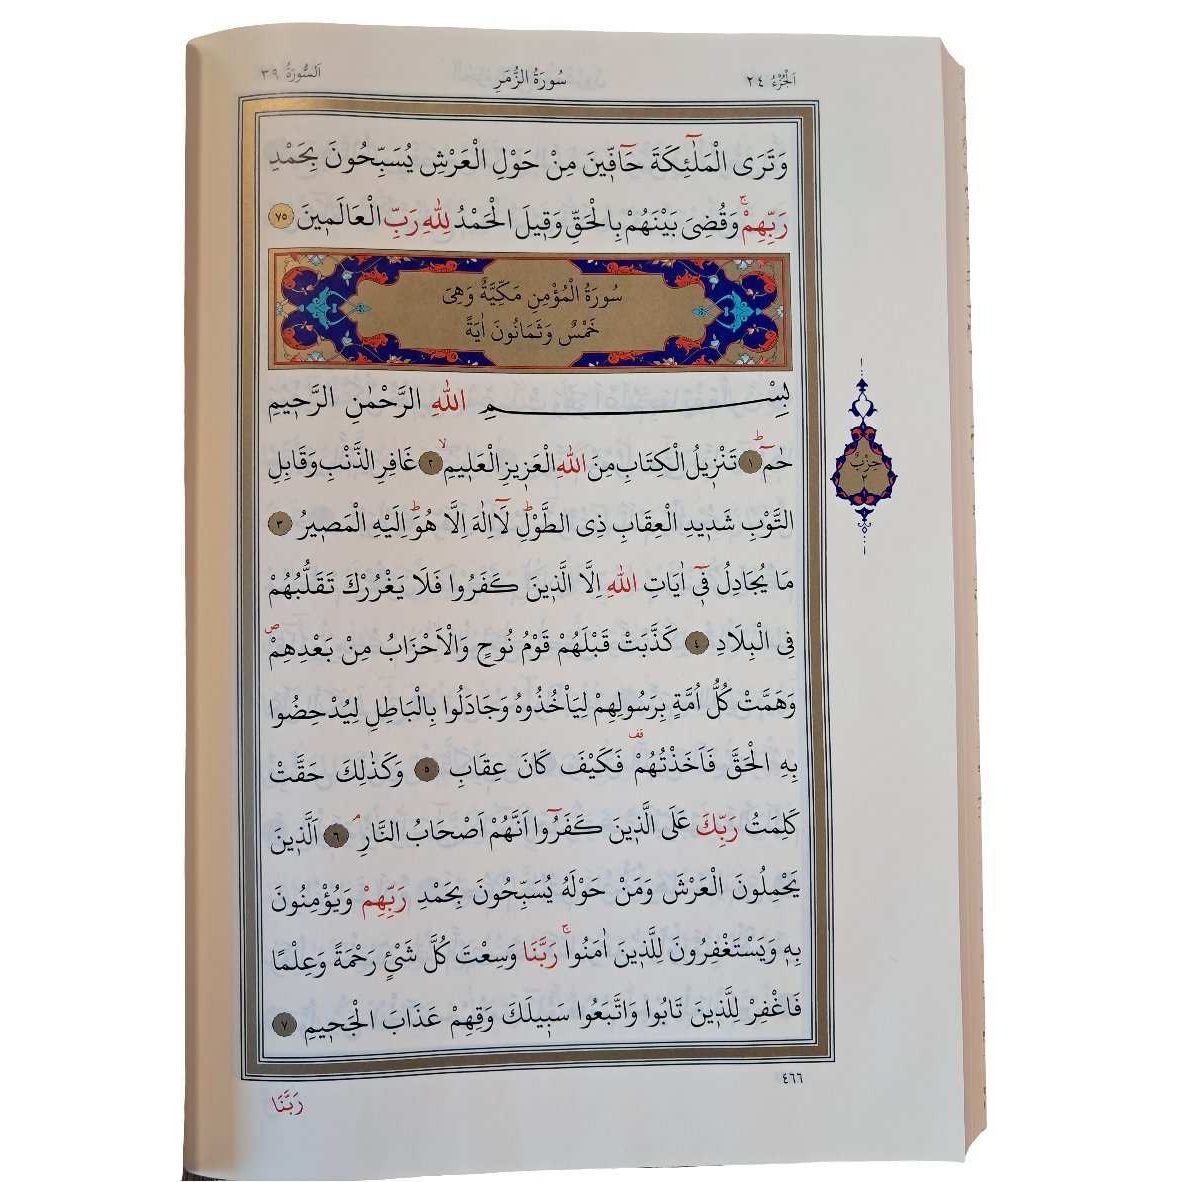 اَلْجُزْءُ ٢٤ سُورَةُ الزُّمَرِ اَلسُّورَةُ ٣٩
وَتَرَى الْمَلٰٓئِكَةَ حَٓافّ۪ينَ مِنْ حَوْلِ الْعَرْشِ يُسَبِّحُونَ بِحَمْدِ
رَبِّهِمْۚ وَقُضِىَ بَيْنَهُمْ بِالْحَقِّ وَق۪يلَ الْحَمْدُ لِلّٰهِ رَبِّ الْعَالَم۪ينَ ٧٥
سُورَةُ الْمُؤْمِنِ مَكِّيَّةٌ وَهِىَ
خَمْسٌ وَثَمَانُونَ اٰيَةً
بِسْمِ اللّٰهِ الرَّحْمٰنِ الرَّح۪يمِ
حٰمٓۜ ١ تَنْز۪يلُ الْكِتَابِ مِنَ اللّٰهِ الْعَز۪يزِ الْعَل۪يمِۙ ٢ غَافِرِ الذَّنْبِ وَقَابِلِ
حِزْبٌ
٢
التَّوْبِ شَد۪يدِ الْعِقَابِ ذِى الطَّوْلِۜ لَٓا اِلٰهَ اِلَّا هُوَۜ اِلَيْهِ الْمَص۪يرُ ٣
مَا يُجَادِلُ ف۪ٓى اٰيَاتِ اللّٰهِ اِلَّا الَّذ۪ينَ كَفَرُوا فَلَا يَغْرُرْكَ تَقَلُّبُهُمْ
فِى الْبِلَادِ ٤ كَذَّبَتْ قَبْلَهُمْ قَوْمُ نُوحٍ وَالْاَحْزَابُ مِنْ بَعْدِهِمْۖ
وَهَمَّتْ كُلُّ اُمَّةٍ بِرَسُولِهِمْ لِيَأْخُذُوهُ وَجَادَلُوا بِالْبَاطِلِ لِيُدْحِضُوا
بِهِ الْحَقَّ فَاَخَذْتُهُمْ قف فَكَيْفَ كَانَ عِقَابِ ٥ وَكَذٰلِكَ حَقَّتْ
كَلِمَتُ رَبِّكَ عَلَى الَّذ۪ينَ كَفَرُٓوا اَنَّهُمْ اَصْحَابُ النَّارِۢ ٦ اَلَّذ۪ينَ
يَحْمِلُونَ الْعَرْشَ وَمَنْ حَوْلَهُ يُسَبِّحُونَ بِحَمْدِ رَبِّهِمْ وَيُؤْمِنُونَ
بِه۪ وَيَسْتَغْفِرُونَ لِلَّذ۪ينَ اٰمَنُواۚ رَبَّنَا وَسِعْتَ كُلَّ شَىْءٍ رَحْمَةً وَعِلْمًا
فَاغْفِرْ لِلَّذ۪ينَ تَابُوا وَاتَّبَعُوا سَب۪يلَكَ وَقِهِمْ عَذَابَ الْجَح۪يمِ ٧
٤٦٦
رَبَّنَا